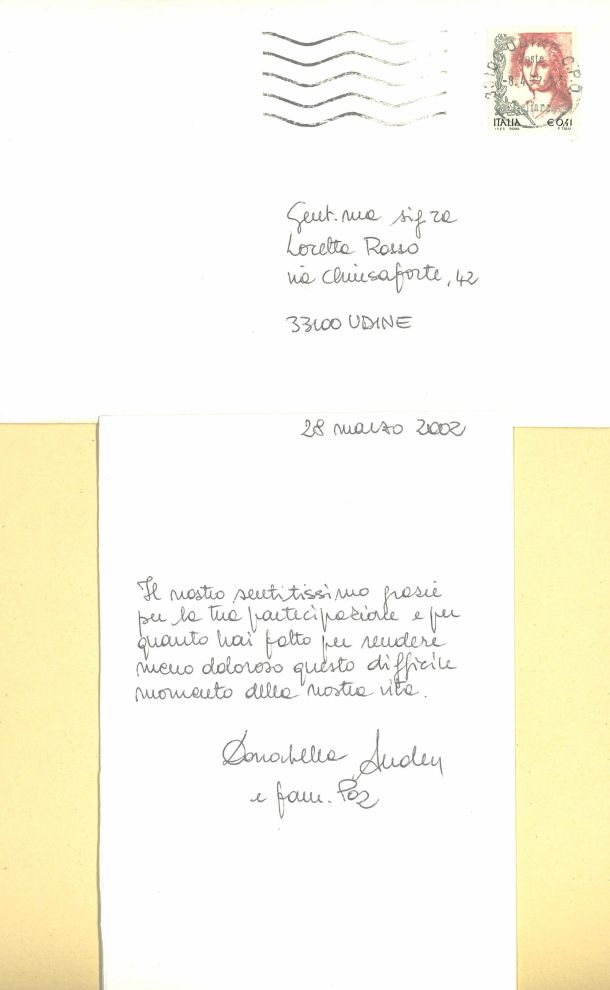 33100 UDINE C.P.O.
Poste
-8.4.02
Italiane
ITALIA €0,41
I.P.Z.S. ROMA
Gent.ma sig.ra
Loretta Rosso
via Chiusaforte, 42
33100 UDINE
28 marzo 2002
Il nostro sentitissimo grazie
per la tua partecipazione e per
quanto hai fatto per rendere
meno doloroso questo difficile
momento della nostra vita.
Donatella
e fam.